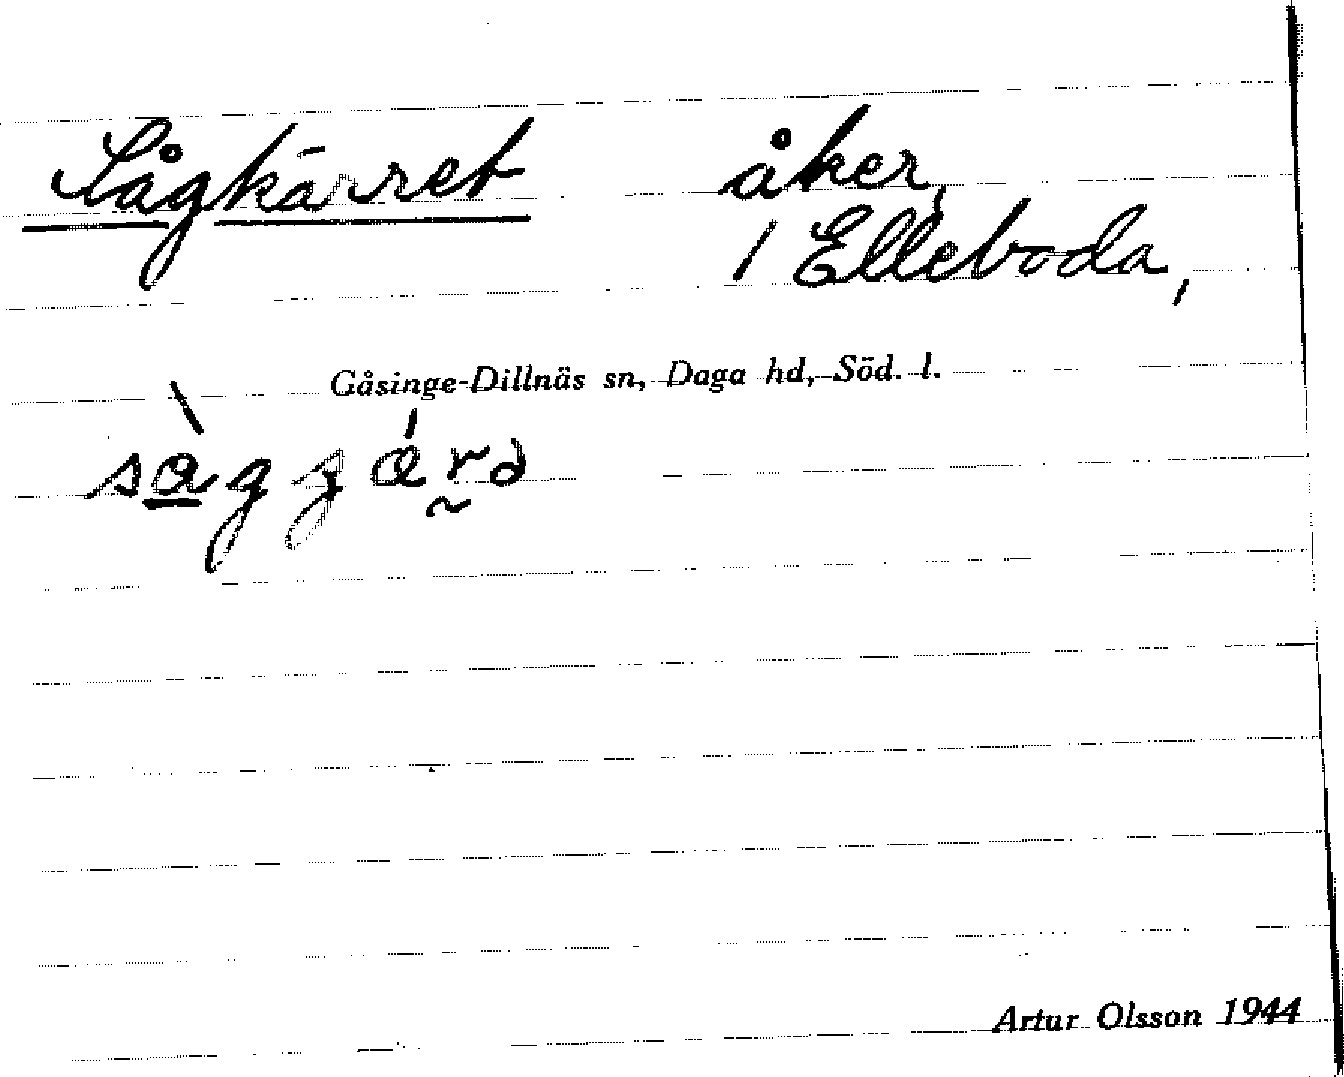 Sågkärret åker,
/ Elleboda,
Gåsinge-Dillnäs sn, Daga hd, Söd. l.
Artur Olsson 1944